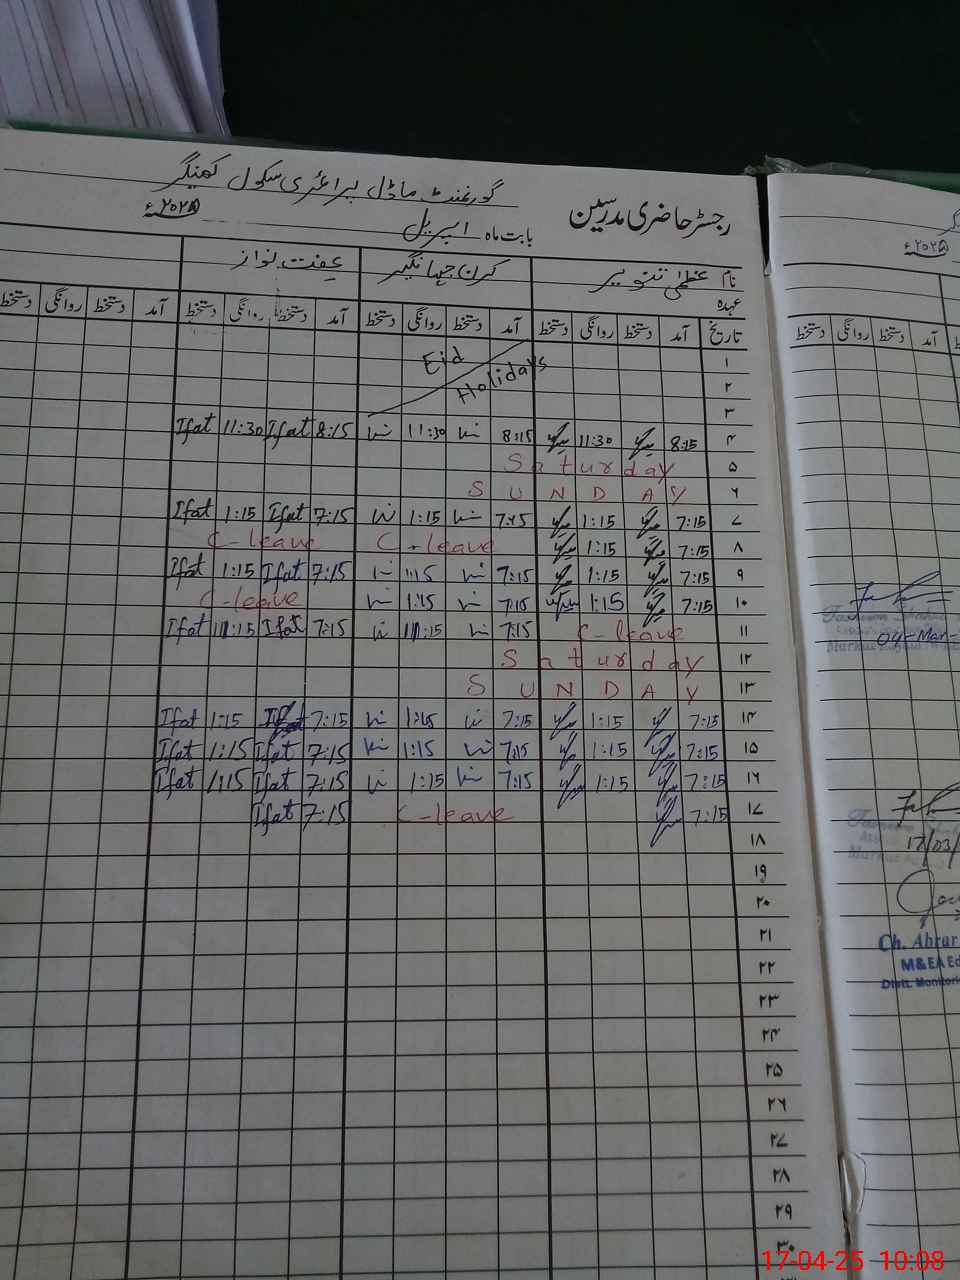 گورنمنٹ ماڈل پرائمری سکول
رجسٹر حاضری مدرسین
بابت ماہ اپریل ۲۰۲۵ء
نام عظمیٰ تنویر کرن جہانگیر عفت نواز
عہدہ
تاریخ آمد دستخط روانگی دستخط آمد دستخط روانگی دستخط آمد دستخط روانگی دستخط آمد دستخط روانگی دستخط
۱ Eid
۲ Holidays
۳
۴ 8:15 11:30 8:15 11:30 8:15 Ifat 11:30 Ifat
۵ Saturday
۶ SUNDAY
۷ 7:15 1:15 7:15 1:15 7:15 Ifat 1:15 Ifat
۸ 7:15 1:15 C-leave C-leave
۹ 7:15 1:15 7:15 1:15 7:15 Ifat 1:15 Ifat
۱۰ 7:15 1:15 7:15 1:15 C-leave
۱۱ C-leave 7:15 7:15 Ifat Ifat
۱۲ Saturday
۱۳ SUNDAY
۱۴ 7:15 1:15 7:15 1:15 7:15 Ifat 1:15 Ifat
۱۵ 7:15 1:15 7:15 1:15 7:15 Ifat 1:15 Ifat
۱۶ 7:15 1:15 7:15 1:15 7:15 Ifat 1:15 Ifat
۱۷ 7:15 C-leave 7:15 Ifat
۱۸
۱۹
۲۰
۲۱
۲۲
۲۳
۲۴
۲۵
۲۶
۲۷
۲۸
۲۹
۳۰
۲۰۲۵ء
آمد دستخط روانگی دستخط
04-Mar-
17/03/
Ch. Abrar
M&EA Ed
Distt. Monitori
17-04-25 10:08